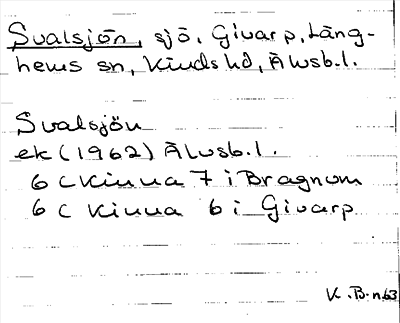 Svalsjön, sjö, Givarp, Läng-
hems sn, Kinds hd, Älvsb.l.
Svalsjön
ek (1962) Älvsb.l.
6 C Kinna 7 i Bragnum
6 C Kinna 6 i Givarp
K.B-n.63